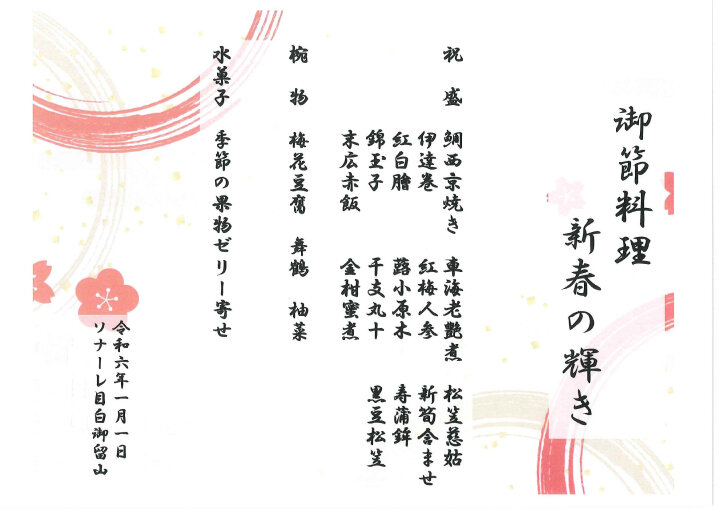 御節料理
新春の輝き
祝 盛 鯛西京焼き 車海老艶煮 松笠慈姑
伊達巻 紅梅人参 新筍含ませ
紅白膾 蕗小原木 寿蒲鉾
錦玉子 干支丸十 黒豆松笠
末広赤飯 金柑蜜煮
椀 物 梅花豆腐 舞鶴 柚菜
水菓子 季節の果物ゼリー寄せ
令和六年一月一日
ソナーレ目白御留山